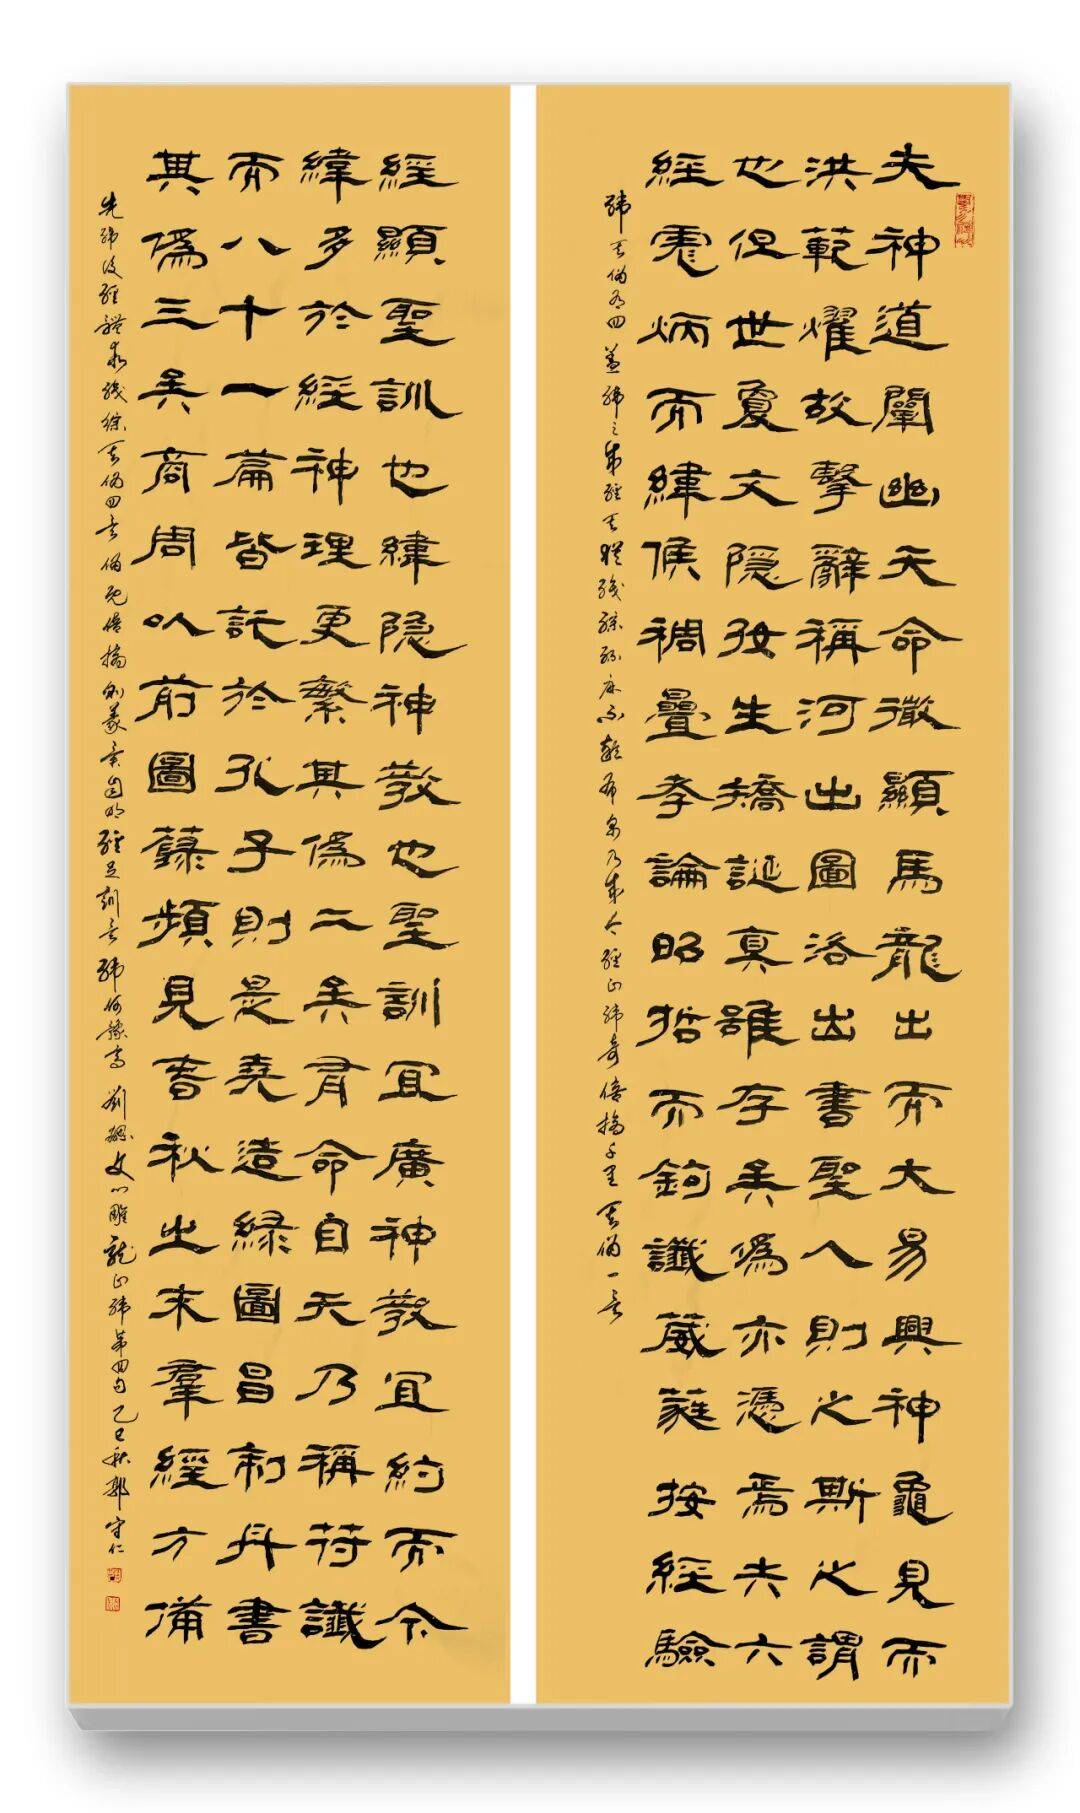 夫神道闡幽天命微顯馬龍出而大易興神龜見而
洪範燿故繫辭稱河出圖洛出書聖人則之斯之謂
也但世夐文隱好生矯誕真雖存矣偽亦憑焉夫六
經彪炳而緯候稠疊孝論昭晢而鉤讖葳蕤按經驗
緯其偽有四蓋緯之成經其猶織綜絲麻不雜布帛乃成今經正緯奇倍擿千里其偽一矣
經顯聖訓也緯隱神教也聖訓宜廣神教宜約而今
緯多於經神理更繁其偽二矣有命自天乃稱符讖
而八十一篇皆託於孔子則是堯造綠圖昌制丹書
其偽三矣商周以前圖籙頻見春秋之末羣經方備
先緯後經體乖織綜其偽四矣偽既倍擿則義異自明經足訓矣緯何豫焉 劉勰文心雕龍正緯第四句 乙巳秋 郭守仁